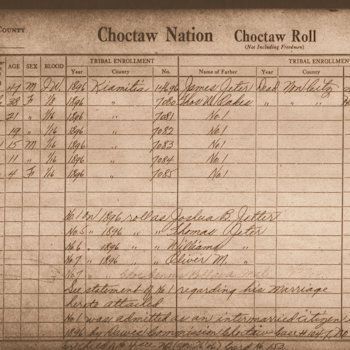 COUNTY
Choctaw Nation Choctaw Roll
(Not Including Freedmen)
TRIBAL ENROLLMENT TRIBAL ENROLLMENT
AGE SEX BLOOD Year County No. Name of Father Year County
47 M I.W. 1896 Kiamitia James Jeter Dead Non Citz
38 F 1/8 1896 " 7080 Thos D. Oakes " "
21 " 1/16 1896 " 7081 No 1
19 " 1/16 1896 " 7082 No 1
15 M 1/16 1896 " 7083 No 1
11 " 1/16 1896 " 7084 No 1
4 F 1/16 1896 " 7085 No 1
No 1 on 1896 roll as Joshua B. Jetter
No 5 " 1896 " " Thomas Jeter
No 6 " 1896 " " William "
No 7 " 1896 " " Oliver M. "
No 7
See statement of No 1 regarding his marriage
hereto attached
No 1 was admitted as an intermarried citizen
1896 by Dawes Commission Choctaw Case #